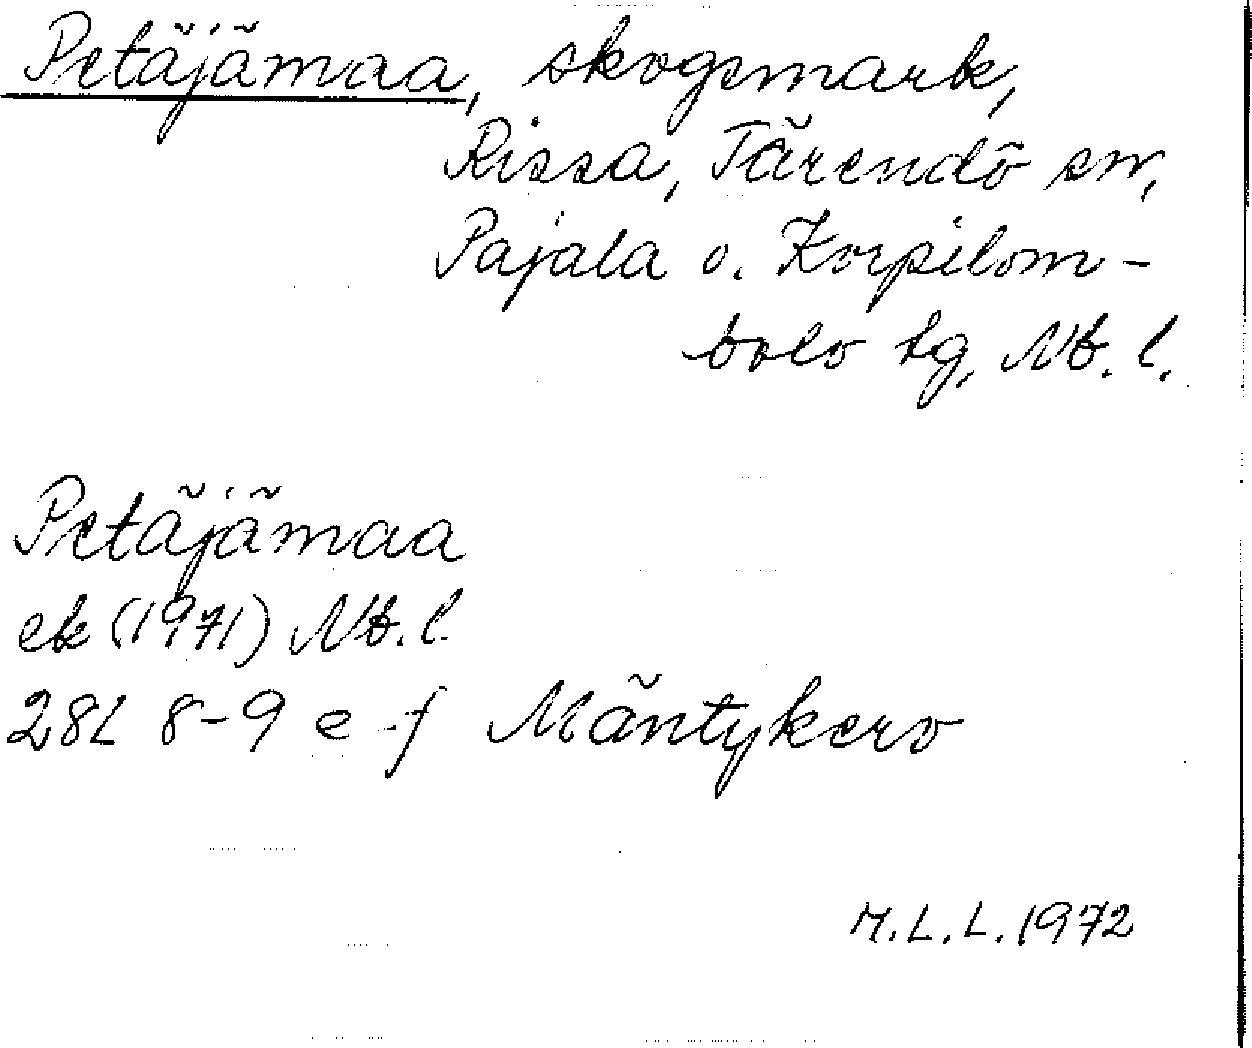 Petäjämaa, skogsmark,
Rissa, Tärendö sn,
Pajala o. Korpilom-
bolo tg, Nb. l.
Petäjämaa
ek (1971) Nb. l.
28L 8-9 e-f Mäntykero
M.L.L. 1972